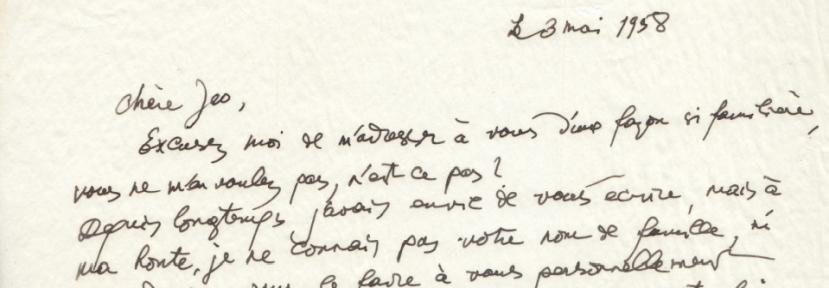 le 3 mai 1958
Chère Jeo,
Excusez moi de m'adresser à vous d'une façon si familière,
vous ne m'en voulez pas, n'est ce pas?
Depuis longtemps j'avais envie de vous écrire, mais à
ma honte, je ne connais pas votre nom de famille, ni
le faire à vous personnellement